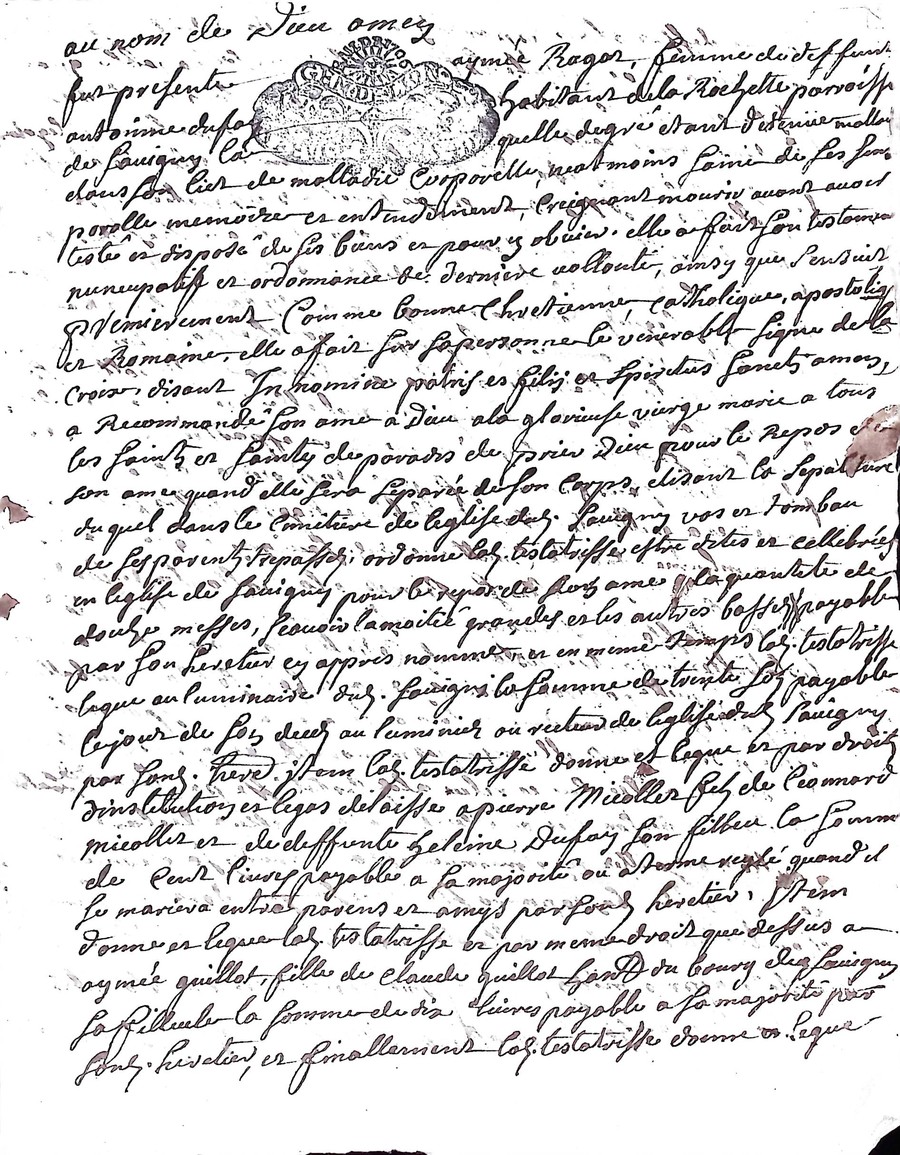 au nom de Dieu amen
fut presente aymée Ragot, femme de deffunt
antoinne dufay habitant de la Rochette parroisse
de Savigny la quelle de gré etant detenüe mallad
dans son lict de malladie Corporelle, neatmoins saine de ses sens
parolle memoire et entendement, Creignant mourir avant avoir
testé et disposé de ses biens et pour y obvier. elle a fait son testamen
nuncupatif et ordonnance de derniere vollonté, ainsy que sensuit
Premierement Comme bonne Chretienne, Catholique, apostoliq
et Romaine, elle a fait sur sa personne le venerable signe de la
Croix, disant In nomine patris et filij et spiritus sancti amen,
a Recommandé son ame a Dieu a la glorieuse vierge marie a tous
les saints et saintes de paradis de prier Dieu pour le Repos de
son ame quand elle sera separée de son Corps, elisant la sepulture
du quel dans le Cimitiere de leglise dud. Savigny vas et tombau
de ses parents trepassés, ordonne lad. testatrisse estre dites et cellebrées
en leglise de Savigny pour le repos de son ame la quantité de
douze messes, scavoir la moitié grandes et les autres basses payable
par son heretier cy appres nommé, et en même temps lad. testatrisse
legue au luminaire dud. Savigni la somme de trente sols payable
le jour de son deces au luminier ou recteur de leglise dud Savigny
par sond. hered. jtem lad. testatrisse donne et legue et par droit
dinstitution et legas delaisse a pierre Micollet fils de Leonnard
micollet et de deffunte heleine Dufay son filleu la somme
de Cent livres payable a sa majorité ou a terme reglé quand il
se mariera entre parens et amys par sond heretier, Jtem
donne et legue lad. testatrisse et par meme droit que dessus a
aymée guillot, fille de Claude guillot hant du bourg de Savigny
sa filleule la somme de dix livres payable a sa majorité par
sond. heretier, et finallement lad. testatrisse donne et legue